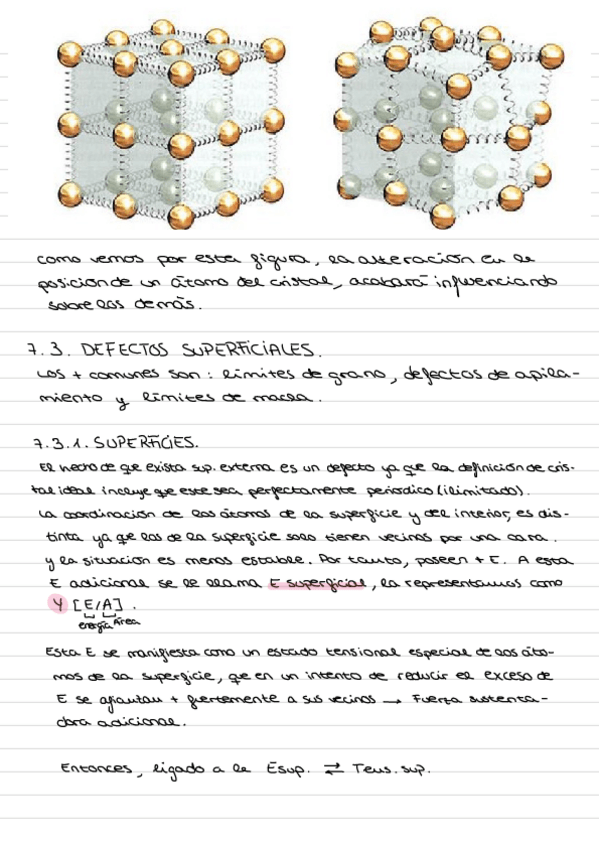 como vemos por esta figura, la alteración en la
posición de un átomo del cristal, acabará influenciando
sobre los demás.
7.3. DEFECTOS SUPERFICIALES.
Los + comunes son: límites de grano, defectos de apila-
miento y límites de macla.
7.3.1. SUPERFICIES.
El hecho de qe exista sup. externa es un defecto ya qe la definición de cris-
tal ideal incluye qe este sea perfectamente periódico (ilimitado).
La coordinación de los átomos de la superficie y del interior, es dis-
tinta ya qe los de la superficie solo tienen vecinos por una cara.
y la situación es menos estable. Por tanto, poseen + E. A esta
E adicional se le llama E superficial, la representamos como
γ [E/A].
energía Área
Esta E se manifiesta como un estado tensional especial de los áto-
mos de la superficie, qe en un intento de reducir el exceso de
E se ajuntan + fuertemente a sus vecinos → Fuerza sustenta-
dora adicional.
Entonces, ligado a la Esup. ⇄ Tens. sup.